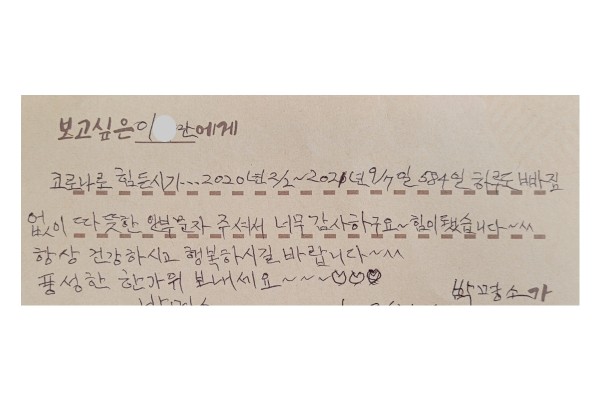 보고싶은 이 만에게
코로나로 힘든시기...2020년 2/2~2021년 9/7일 584일 하루도 빠짐
없이 따뜻한 안부문자 주셔서 너무 감사하구요~힘이됐습니다~^^
항상 건강하시고 행복하시길 바랍니다~^^
풍성한 한가위 보내세요~~~♡♡♡
박경소가